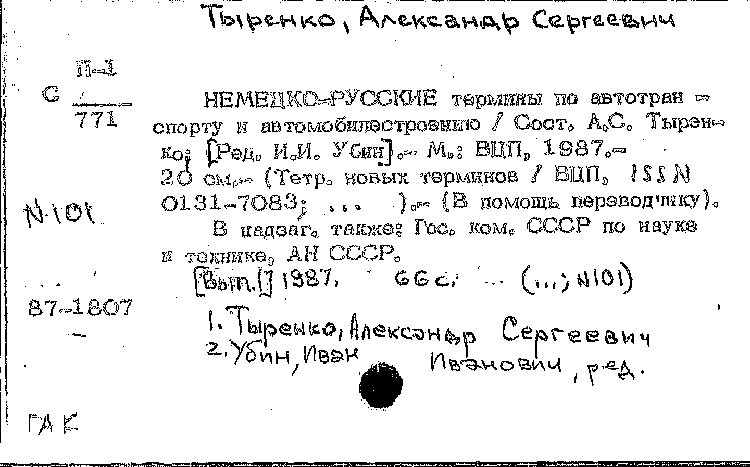 Тыренко, Александр Сергеевич
П-1
С
771
НЕМЕЦКО-РУССКИЕ термины по автотран -
спорту и автомобилестроению / Сост. А.С. Тырен-
ко; [Ред. И.И. Убин].- М.: ВЦП, 1987.-
20 см.- (Тетр. новых терминов / ВЦП, ISSN
0131-7083; ... ).- (В помощь переводчику).
N 101
В надзаг. также: Гос. ком. СССР по науке
и технике, АН СССР.
[Вып.1] 1987. 66 с. ... (...; N101)
87-1807
1. Тыренко, Александр Сергеевич
2. Убин, Иван Иванович, ред.
ГАК